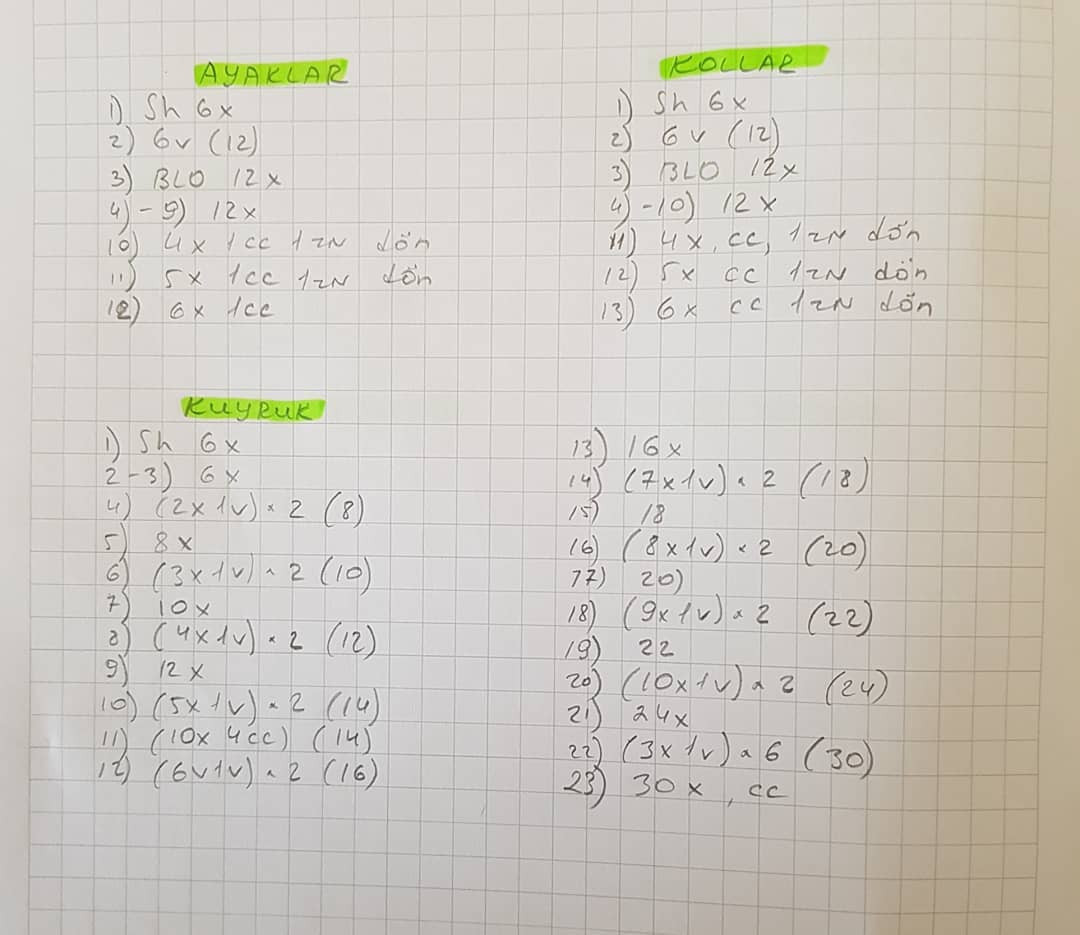 AYAKLAR
1) Sh 6x
2) 6v (12)
3) BLO 12x
4)-9) 12x
10) 4x 1cc 1zN dön
11) 5x 1cc 1zN dön
12) 6x 1cc
KOLLAR
1) Sh 6x
2) 6v (12)
3) BLO 12x
4)-10) 12x
11) 4x, cc, 1zN dön
12) 5x cc 1zN dön
13) 6x cc 1zN dön
KUYRUK
1) Sh 6x
2-3) 6x
4) (2x1v) × 2 (8)
5) 8x
6) (3x1v) × 2 (10)
7) 10x
8) (4x1v) × 2 (12)
9) 12x
10) (5x1v) × 2 (14)
11) (10x 4cc) (14)
12) (6v1v) × 2 (16)
13) 16x
14) (7x1v) × 2 (18)
15) 18
16) (8x1v) × 2 (20)
17) 20)
18) (9x1v) × 2 (22)
19) 22
20) (10x1v) × 2 (24)
21) 24x
22) (3x1v) × 6 (30)
23) 30x, cc